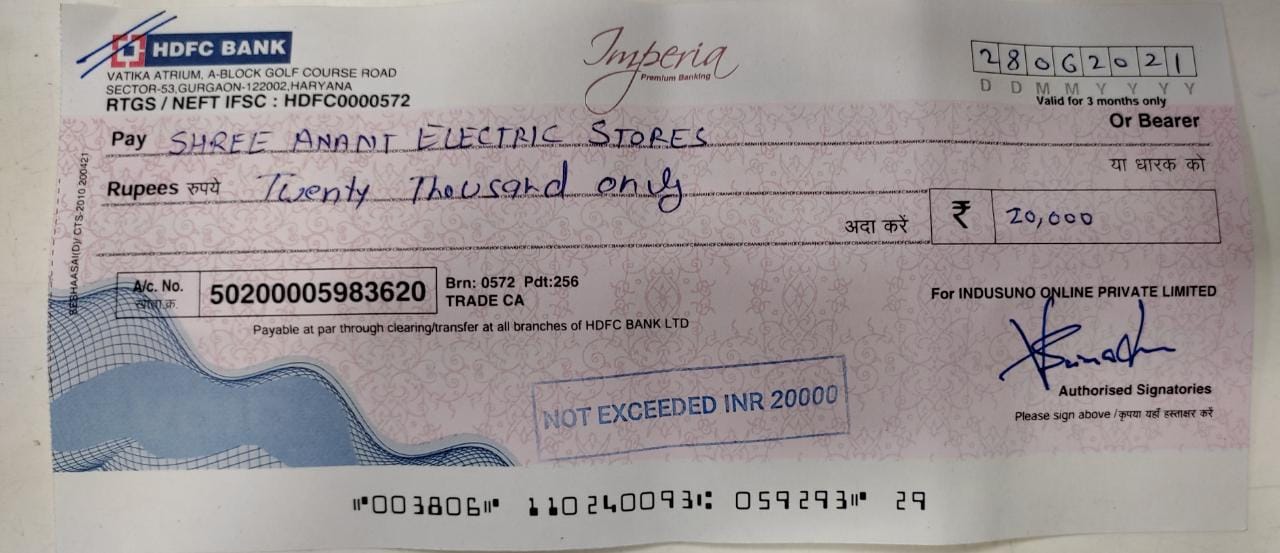 HDFC BANK
VATIKA ATRIUM, A-BLOCK GOLF COURSE ROAD
SECTOR-53,GURGAON-122002,HARYANA
RTGS / NEFT IFSC : HDFC0000572
Imperia
Premium Banking
28062021
D D M M Y Y Y Y
Valid for 3 months only
Pay SHREE ANANT ELECTRIC STORES
Or Bearer
या धारक को
Rupees रुपये Twenty Thousand only
अदा करें
₹ 20,000
A/c. No.
खाता क्र.
50200005983620
Brn: 0572 Pdt:256
TRADE CA
Payable at par through clearing/transfer at all branches of HDFC BANK LTD
For INDUSUNO ONLINE PRIVATE LIMITED
Authorised Signatories
Please sign above / कृपया यहाँ हस्ताक्षर करें
NOT EXCEEDED INR 20000
⑈003806⑈ 110240093⑆ 059293⑈ 29